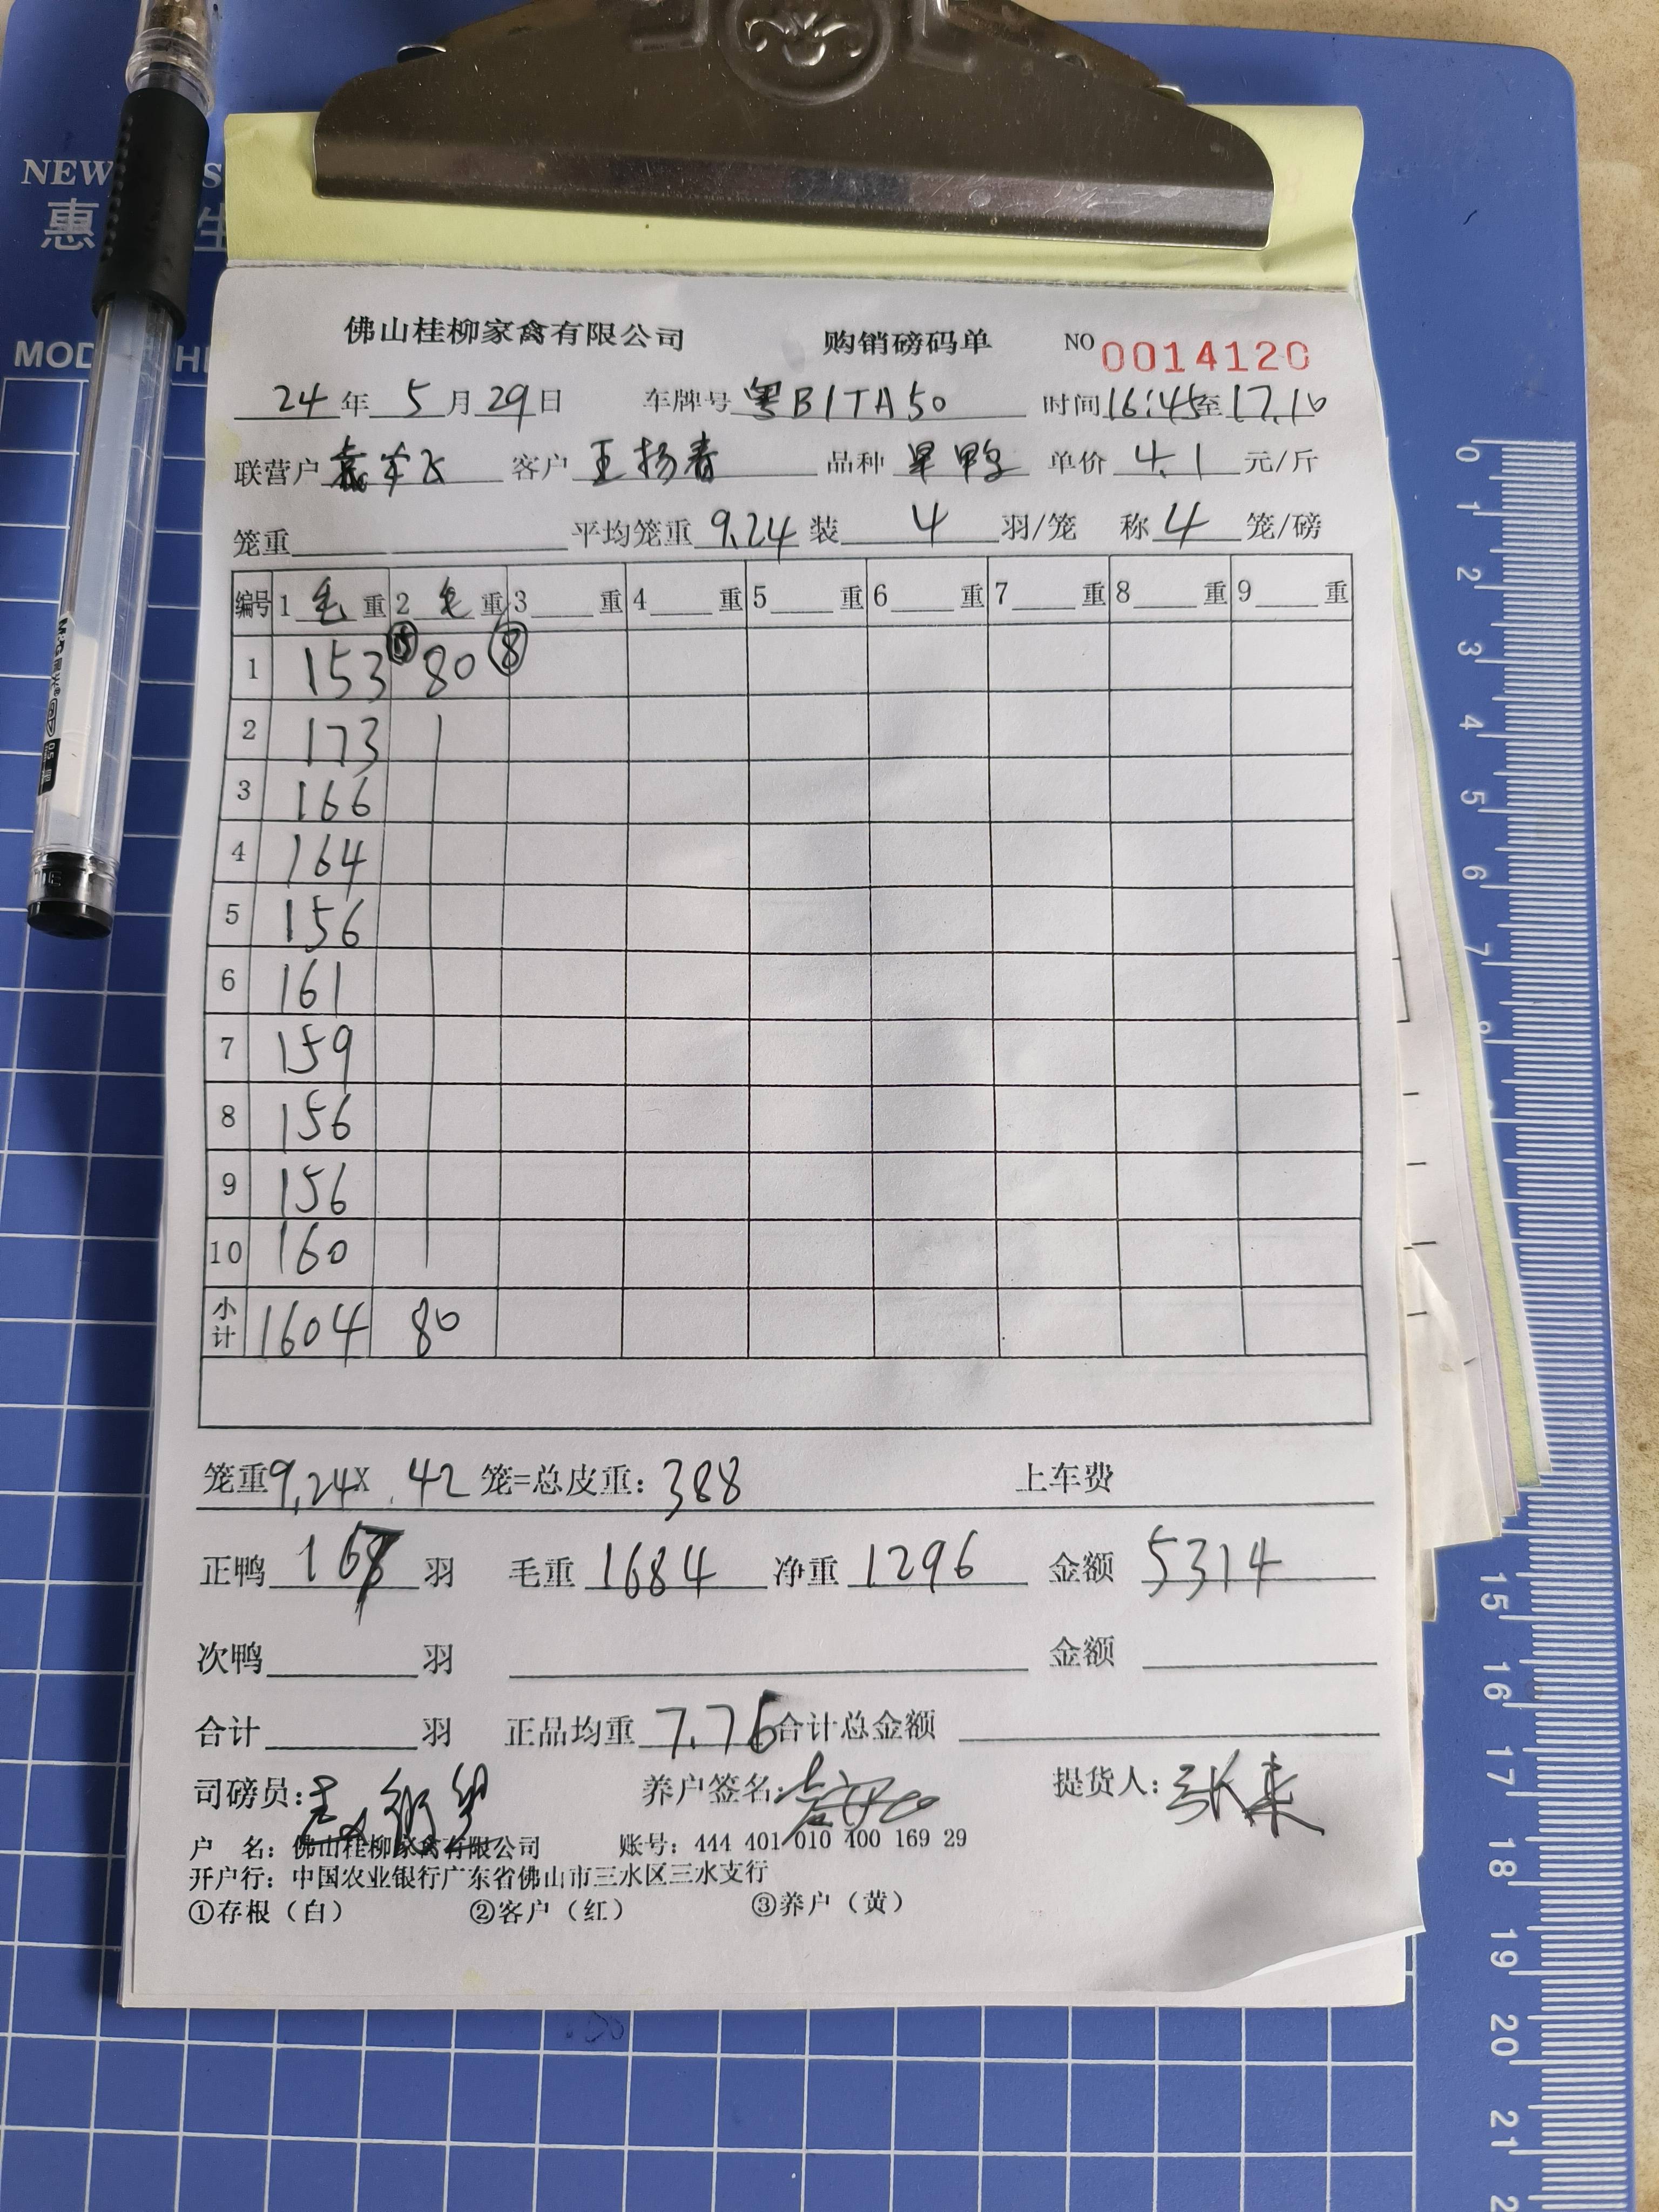 NEW S
惠 生
MOD HI
佛山桂柳家禽有限公司 购销磅码单 NO 0014120
24年5月29日 车牌号粤B1TA50 时间16:45至17.10
联营户 客户王扬春 品种 鸭 单价4.1元/斤
笼重 平均笼重9.24装4羽/笼 称4笼/磅
编号 1毛重 2毛重 3重 4重 5重 6重 7重 8重 9重
1 153 80 ⑧
2 173
3 166
4 164
5 156
6 161
7 159
8 156
9 156
10 160
小计 1604 80
笼重9.24X.42笼=总皮重：388 上车费
正鸭 羽 毛重1684 净重1296 金额5314
次鸭 羽 金额
合计 羽 正品均重7.76合计总金额
司磅员： 养户签名： 提货人：张来
户 名：佛山桂柳家禽有限公司 账号：444 401 010 400 169 29
开户行：中国农业银行广东省佛山市三水区三水支行
①存根（白） ②客户（红） ③养户（黄）
M&G
0.5
0
1
2
3
4
5
6
7
8
15
16
17
18
19
20
21